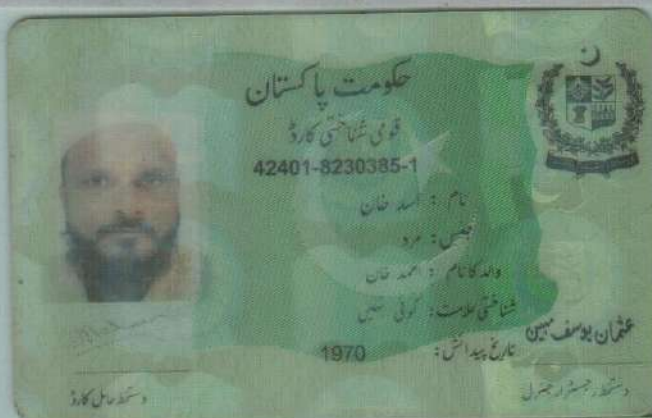 حکومت پاکستان
قومی شناختی کارڈ
42401-8230385-1
نام : اسد خان
جنس: مرد
والد کا نام : احمد خان
شناختی علامت: کوئی نہیں
تاریخ پیدائش: 1970
عثمان یوسف مبین
دستخط رجسٹرار جنرل
دستخط حامل کارڈ